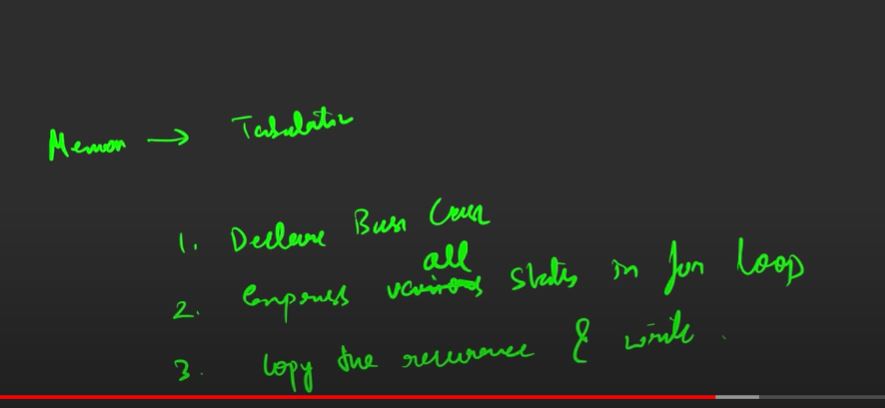 Memo → Tabulation
1. Declare Base Case
all
2. Express various states in for loop
3. Copy the recurrence & write.